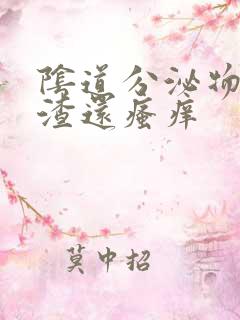 陰道分泌物
渣還瘙痒
莫中招